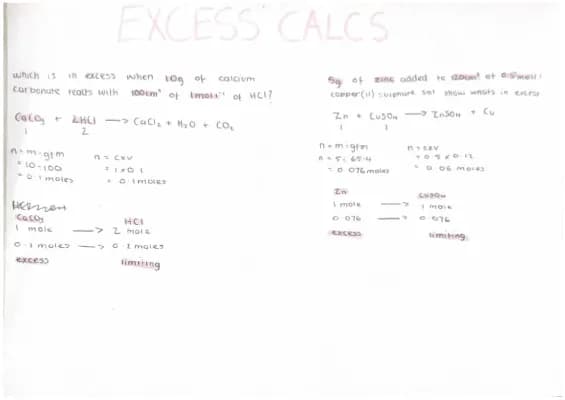 EXCESS CALCS
which is in excess when 10g of calcium
carbonate reacts with 100cm³ of 1moll⁻¹ of HCl?
CaCO₃ + 2HCl —> CaCl₂ + H₂O + CO₂
1 2
n = m ÷ gfm n = cxv
= 10 ÷ 100 = 1 x 0.1
= 0.1 moles = 0.1 moles
CaCO₃ HCl
1 mole —> 2 mole
0.1 moles —> 0.2 moles
excess limiting
5g of zinc added to 120cm³ of 0.5moll⁻¹
copper(II) sulphate sol show whats in excess
Zn + CuSO₄ —> ZnSO₄ + Cu
1 1
n = m ÷ gfm n = cxv
n = 5 ÷ 65.4 = 0.5 x 0.12
= 0.076 moles = 0.06 moles
Zn CuSO₄
1 mole —> 1 mole
0.076 —> 0.076
excess limiting